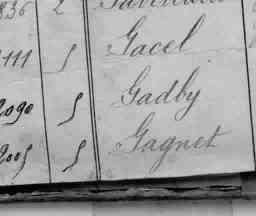 836 2
1111 5 Gacel
2090 5 Gadby
2005 5 Gagnet